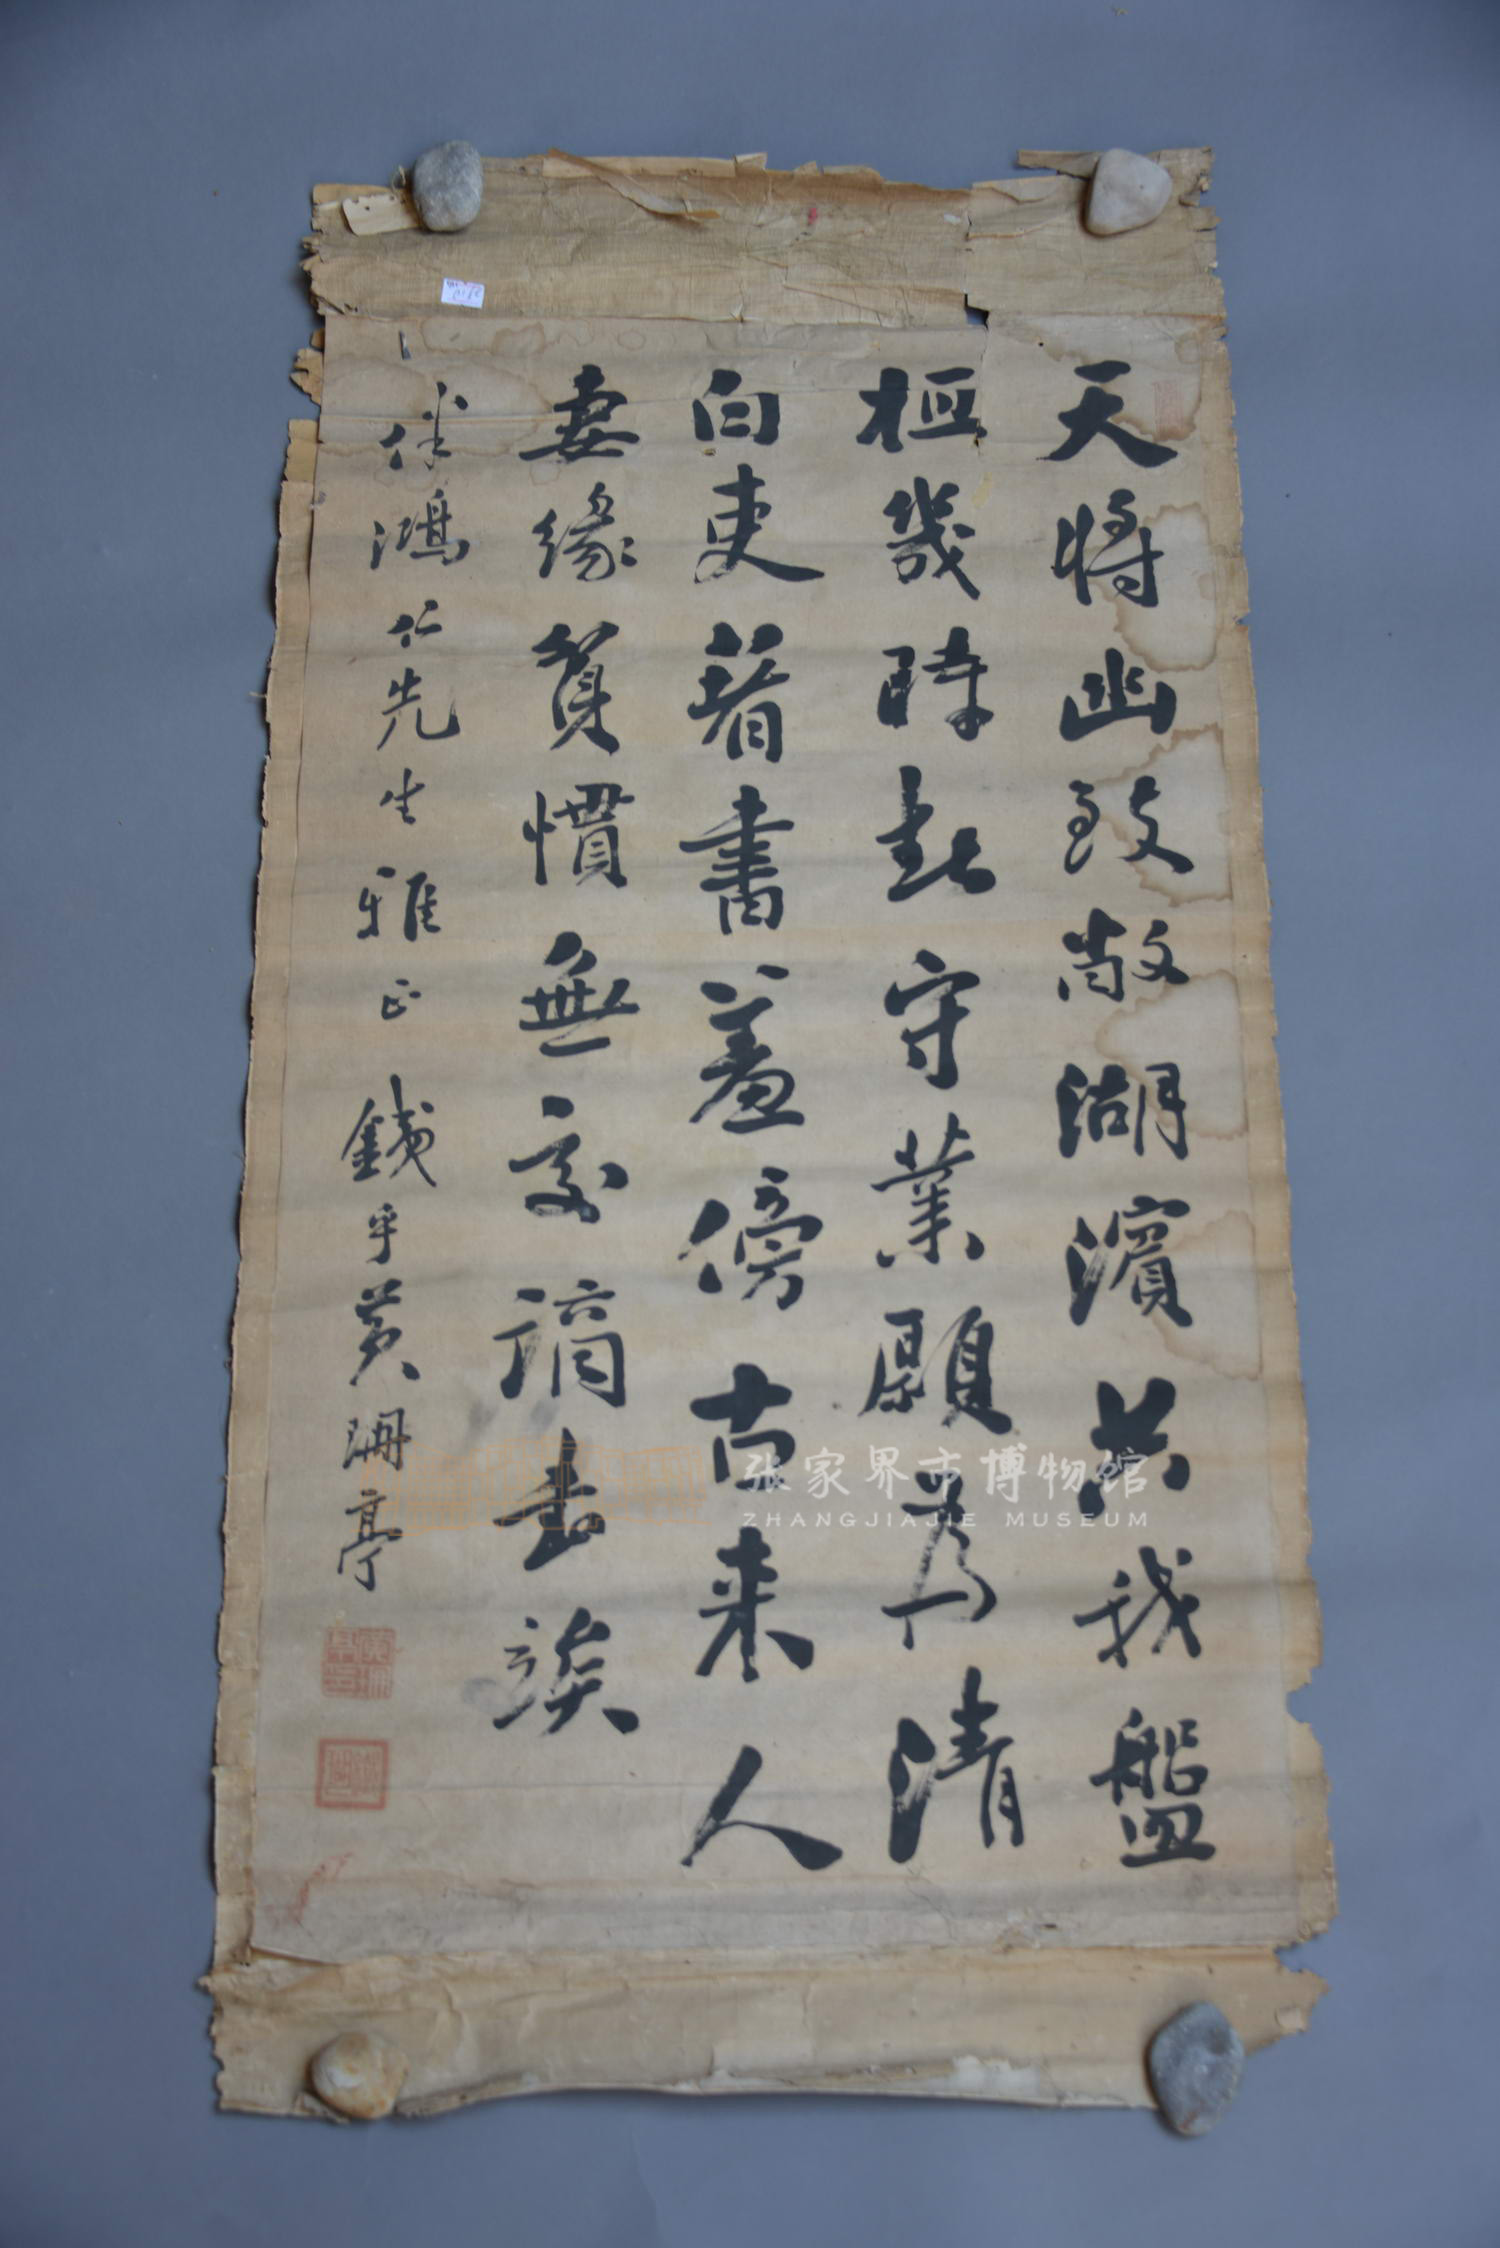 天將幽致敞湖濱共我盤
桓幾時新守業願為清
白吏著書羞傍古來人
妻緣貧慣無交謫
伴鴻仁先生雅正
錢乎黃珊亭
张家界市博物馆
ZHANGJIAJIE MUSEUM